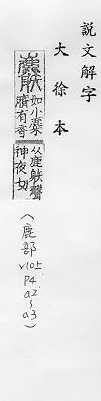 說文解字
大徐本
麝
如小麋
臍有香
从鹿䠶聲
神夜切
(鹿部
v10上
P4
a2~
a3)